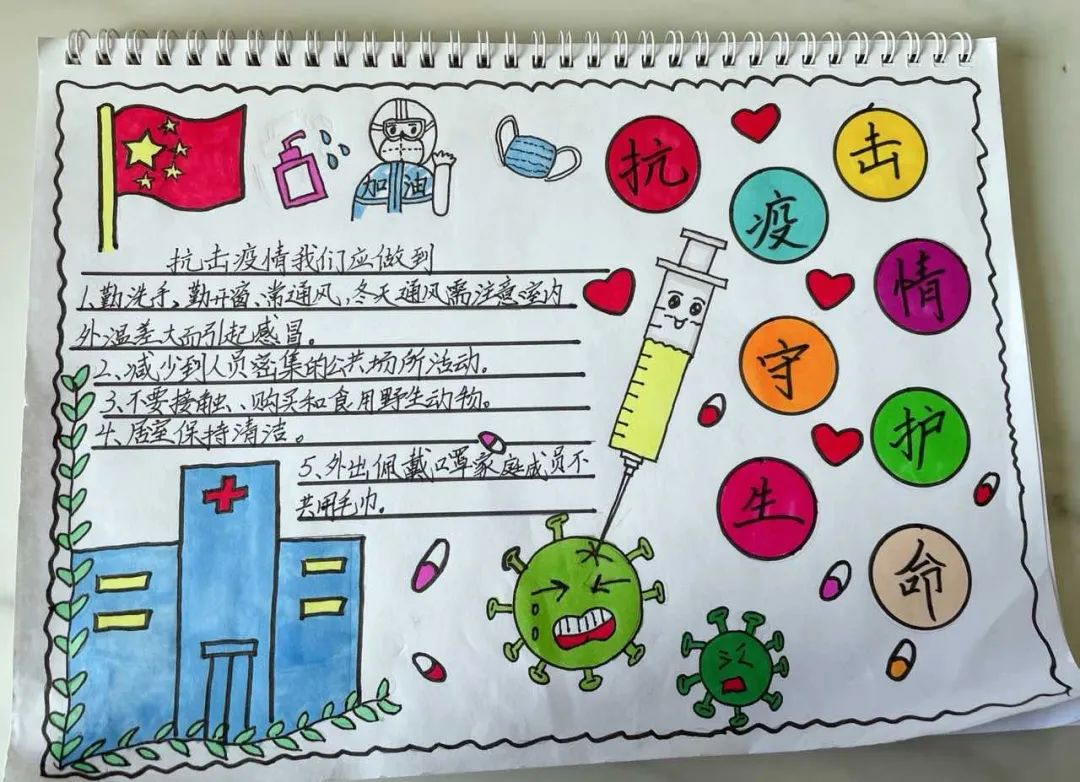 加油
抗击疫情
守护生命
抗击疫情我们应做到
1、勤洗手、勤开窗、常通风,冬天通风需注意室内
外温差大而引起感冒。
2、减少到人员密集的公共场所活动。
3、不要接触、购买和食用野生动物。
4、居室保持清洁。
5、外出佩戴口罩家庭成员不
共用毛巾。